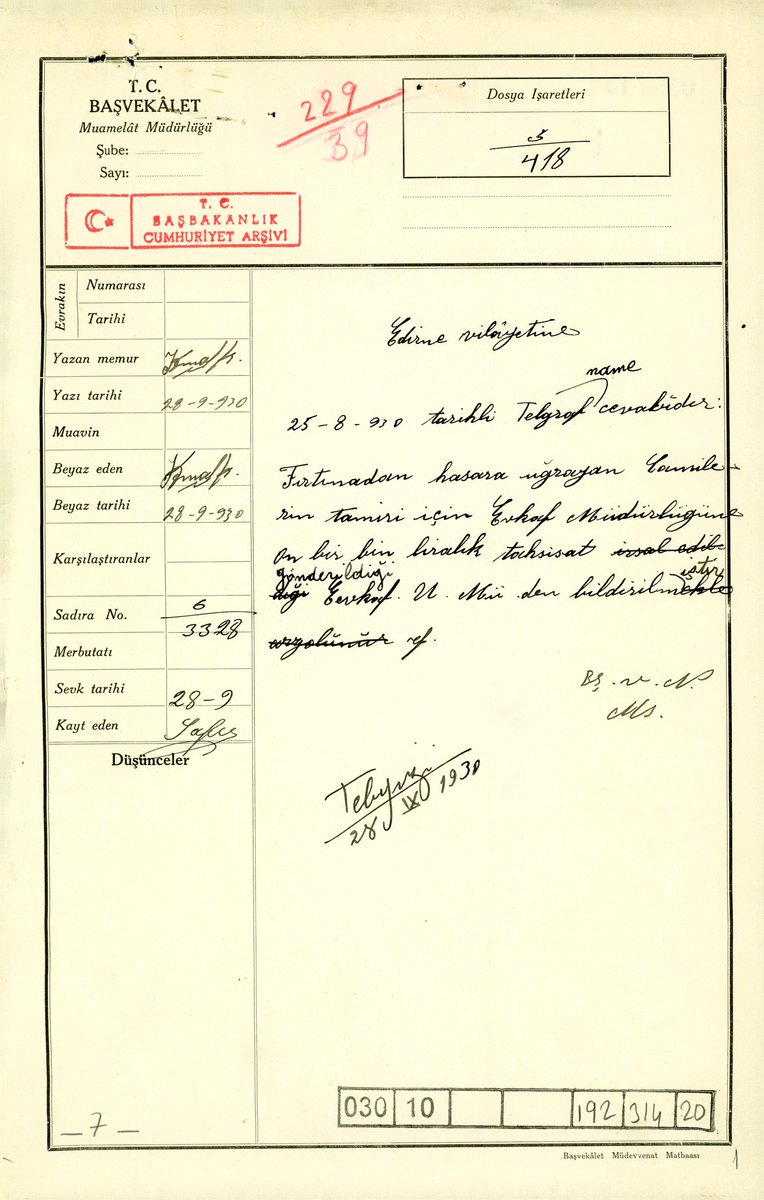 T. C.
BAŞVEKÂLET
Muamelât Müdürlüğü
Şube:
Sayı:
229
39
Dosya Işaretleri
5
418
T. C.
BAŞBAKANLIK
CUMHURİYET ARŞİVİ
Evrakın
Numarası
Tarihi
Yazan memur
Yazı tarihi 28-9-930
Muavin
Beyaz eden
Beyaz tarihi 28-9-930
Karşılaştıranlar
Sadıra No. 6
3328
Merbutatı
Sevk tarihi 28-9
Kayt eden
Düşünceler
Edirne vilâyetine
name
25-8-930 tarihli Telgraf cevabıdır:
Fırtınadan hasara uğrayan Camile-
rin tamiri için Evkaf Müdürlügüne
on bir bin liralık tahsisat irsal edil
gönderildiği iştir
diği Eevkaf. U. Mü den bildirilmekle
arzolunur ef.
Bş. v. N.
Ms.
28 IX 1930
030 10 192 314 20
- 7 -
Başvekâlet Müdevvenat Matbaası
1